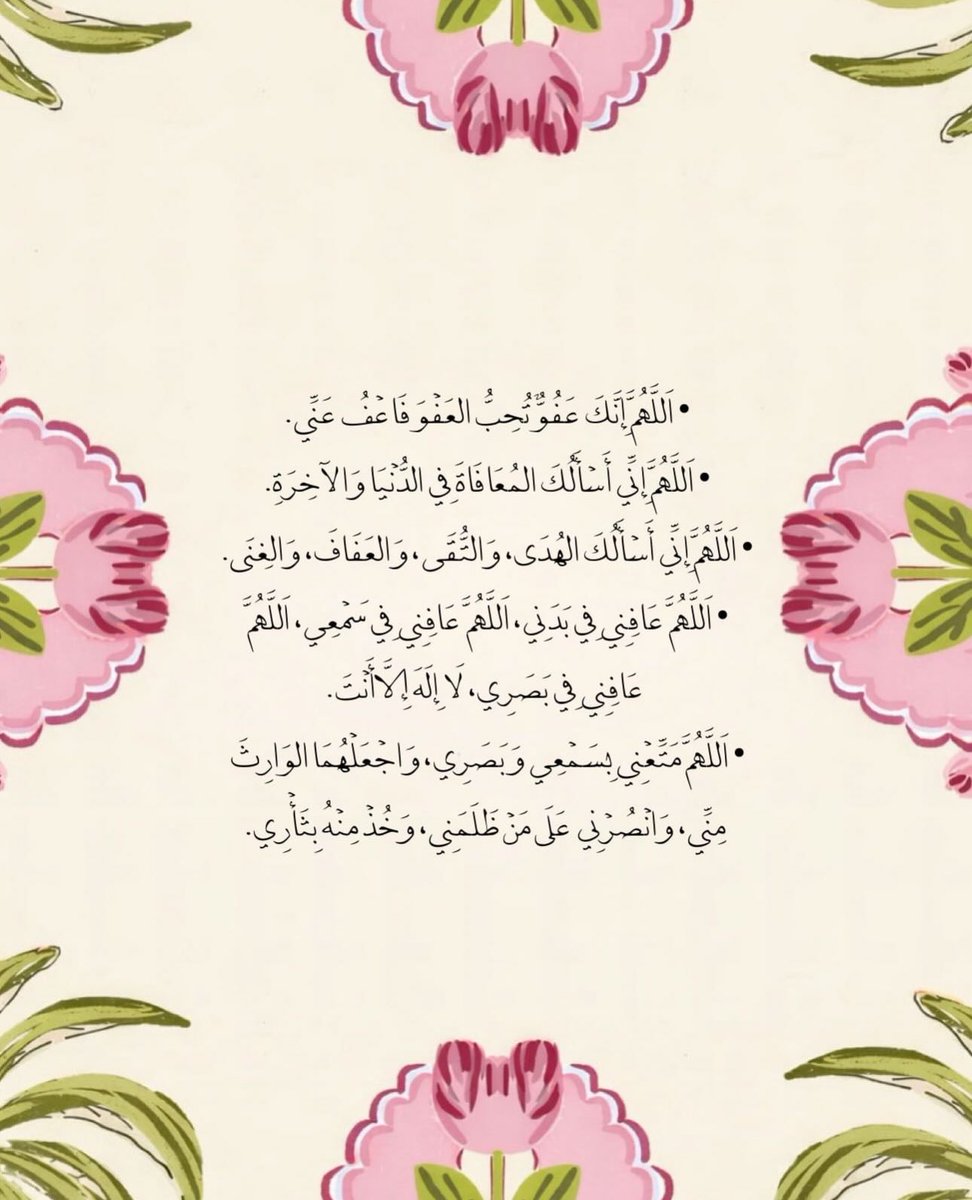 • اَللَّهُمَّ إِنَّكَ عَفُوٌّ تُحِبُّ العَفْوَ فَاعْفُ عَنِّي.
• اَللَّهُمَّ إِنِّي أَسْأَلُكَ المُعَافَاةَ فِي الدُّنْيَا وَالآخِرَةِ.
• اَللَّهُمَّ إِنِّي أَسْأَلُكَ الهُدَى، وَالتُّقَى، وَالعَفَافَ، وَالغِنَى.
• اَللَّهُمَّ عَافِنِي فِي بَدَنِي، اَللَّهُمَّ عَافِنِي فِي سَمْعِي، اَللَّهُمَّ
عَافِنِي فِي بَصَرِي، لَا إِلَهَ إِلَّا أَنْتَ.
• اَللَّهُمَّ مَتِّعْنِي بِسَمْعِي وَبَصَرِي، وَاجْعَلْهُمَا الوَارِثَ
مِنِّي، وَانْصُرْنِي عَلَى مَنْ ظَلَمَنِي، وَخُذْ مِنْهُ بِثَأْرِي.